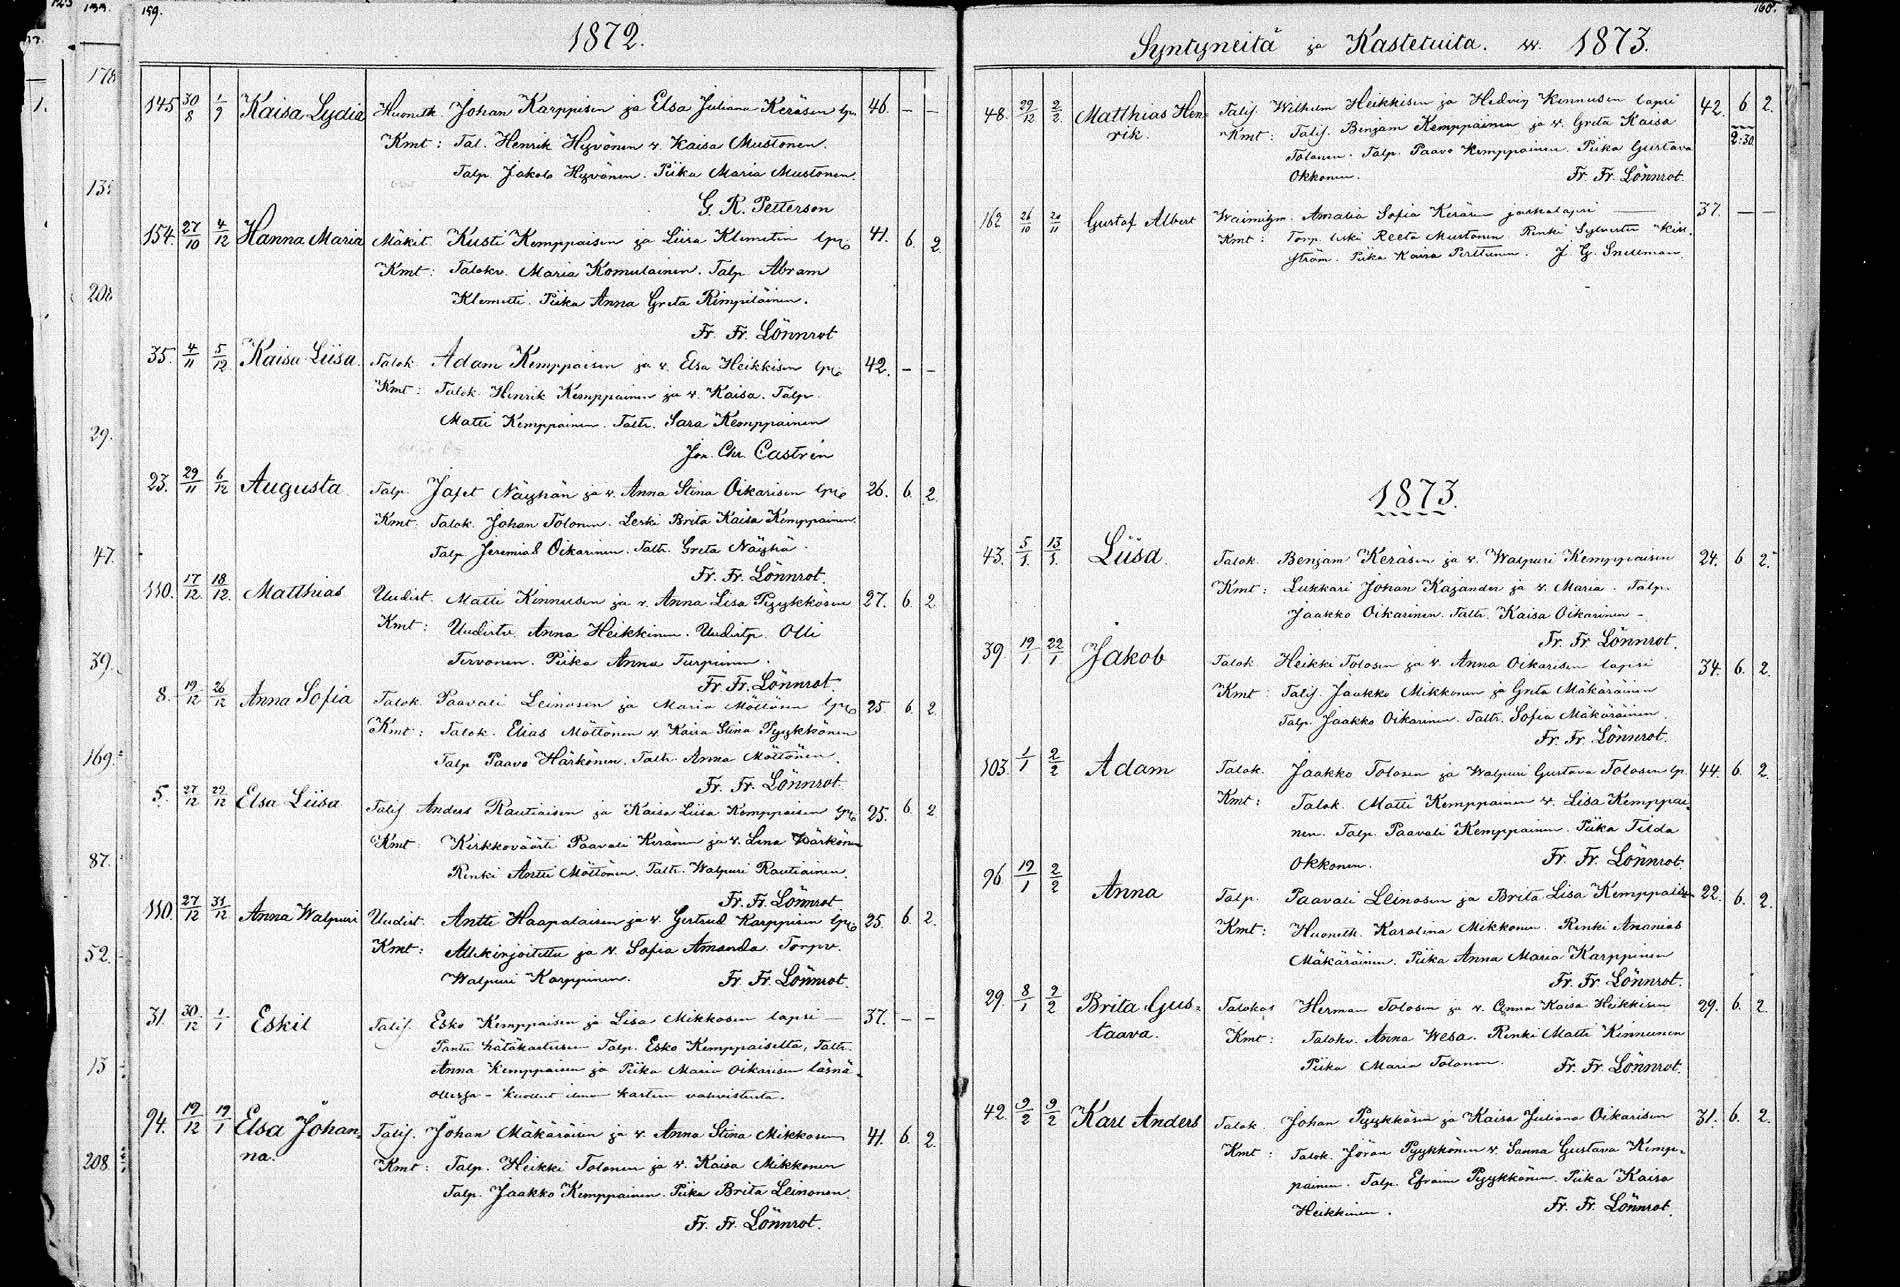 159.
1872.
145 30/8 1/9 Kaisa Lydia Huoneth. Johan Karppisen ja Elsa Juliana Keräsen lps 46. – –
Kmt: Tal. Henrik Hyvönen v. Kaisa Mustonen.
Talp. Jakob Hyvönen. Piika Maria Mustonen.
G. R. Petterson
154. 27/10 4/12 Hanna Maria Mäkit. Kusti Kemppaisen ja Liisa Klemetin lps 41. 6. 2.
Kmt: Talokv. Maria Komulainen. Talp. Abram
Klemetti. Piika Anna Greta Rimpiläinen.
Fr. Fr. Lönnrot
35. 4/11 5/12 Kaisa Liisa. Talok. Adam Kemppaisen ja v. Elsa Heikkisen lps 42. – –
Kmt: Talok. Henrik Kemppainen ja v. Kaisa. Talp.
Matti Kemppainen. Taltr. Sara Kemppainen
Joh. Chr. Castrén
23. 29/11 6/12 Augusta Talp. Jafet Näyhän ja v. Anna Stina Oikarisen lps 26. 6. 2.
Kmt. Talok. Johan Tolonen. Leski Brita Kaisa Kemppainen.
Talp. Jeremias Oikarinen. Taltr. Greta Näyhä.
Fr. Fr. Lönnrot.
110. 17/12 18/12. Matthias Uudist. Matti Kinnusen ja v. Anna Lisa Pyykkösen 27. 6. 2.
Kmt: Uudistv. Anna Heikkinen. Uudistp. Olli
Tervonen. Piika Anna Turpeinen.
Fr. Fr. Lönnrot.
8. 19/12 26/12 Anna Sofia Talok. Paavali Leinosen ja Maria Möttösen lps 25 6 2.
Kmt: Talok. Elias Möttönen v. Kaisa Stina Pyykkönen
Talp. Paavo Härkönen. Taltr. Anna Möttönen.
Fr. Fr. Lönnrot.
5. 27/12 29/12 Elsa Liisa Talij. Anders Rautiaisen ja Kaisa Liisa Kemppaisen lps 25. 6. 2
Kmt Kirkkoväärti Paavali Keränen ja v. Lena Härkönen
Renki Antti Möttönen. Taltr. Walpuri Rautiainen.
Fr. Fr. Lönnrot
110. 27/12 31/12 Anna Walpuri Uudist. Antti Haapalaisen ja v. Gertrud Karppisen lps 25. 6 2.
Kmt: Allekirjoitettu ja v. Sofia Amanda. Torpv.
Walpuri Karppinen. Fr. Fr. Lönnrot.
31. 30/12 1/1 Eskil Talij. Esko Kemppaisen ja Lisa Mikkosen lapsi — 37. – –
Pantu hätäkasteesen Talp. Esko Kemppaiselta, Taltr.
Anna Kemppaisen ja Piika Maria Oikarisen läsnä-
ollessa – kuollut ilman kasteen vahvistusta.
94. 19/12 19/1 Elsa Johan-
na. Talij. Johan Mäkäräisen ja v. Anna Stina Mikkosen 41. 6. 2.
Kmt: Talp. Heikki Tolonen ja v. Kaisa Mikkonen
Talp. Jaakko Kemppainen. Piika Brita Leinonen.
Fr. Fr. Lönnrot.
160.
Syntyneitä ja Kastetuita. vv. 1873.
48. 29/12 2/2 Matthias Hen-
rik. Talij. Wilhelm Heikkisen ja Hedvig Kinnusen lapsi 42. 6 2.
Kmt: Talij. Benjam Kemppainen ja v. Greta Kaisa 2:30.
Tolonen. Talp. Paavo Kemppainen. Piika Gustava
Okkonen. Fr. Fr. Lönnrot.
162 26/10 20/11 Gustaf Albert Amalia Sofia Kerä lapsi — 37. — —
Kmt: Torp. leski Reeta Mustonen Renki Sylvester
ström. Piika Kaisa Perttunen. J. G. Snellman.
1873.
43. 5/1. 13/1. Liisa. Talok. Benjam Keräsen ja v. Walpuri Kemppaisen 24. 6 2.
Kmt: Lukkari Johan Kajander ja v. Maria. Talp.
Jaakko Oikarinen. Taltr. Kaisa Oikarinen –
Fr. Fr. Lönnrot.
39 19/1 22/1 Jakob Talok. Heikki Tolosen ja v. Anna Oikarisen lapsi 34. 6. 2.
Kmt: Talij. Jaakko Mikkonen ja Greta Mäkäräinen
Talp. Jaakko Oikarinen. Taltr. Sofia Mäkäräinen.
Fr. Fr. Lönnrot.
103. 1/1 2/2 Adam Talok. Jaakko Tolosen ja Walpuri Gustava Tolosen lp. 44. 6. 2.
Kmt: Talok. Matti Kemppainen v. Lisa Kemppai-
nen. Talp. Paavali Kemppainen. Piika Tilda
Okkonen. Fr. Fr. Lönnrot.
96. 19/1 2/2 Anna Talp. Paavali Leinosen ja Brita Lisa Kemppaisen 22. 6. 2.
Kmt: Huoneth. Karolina Mikkonen. Renki Ananias
Mäkäräinen. Piika Anna Maria Karppinen
Fr. Fr. Lönnrot.
29. 8/1 9/2 Brita Gus-
taava. Talokas Herman Tolosen ja v. Anna Kaisa Heikkisen 29. 6. 2.
Kmt: Talokv. Anna Wesa. Renki Matti Kinnunen
Piika Maria Tolonen. Fr. Fr. Lönnrot.
42. 9/2 9/2 Karl Anders Talok. Johan Pyykkösen ja Kaisa Juliana Oikarisen 31. 6. 2.
Kmt: Talok. Jöran Pyykkönen v. Sanna Gustava Kemp-
painen. Talp. Efraim Pyykkönen. Piika Kaisa
Heikkinen. Fr. Fr. Lönnrot.